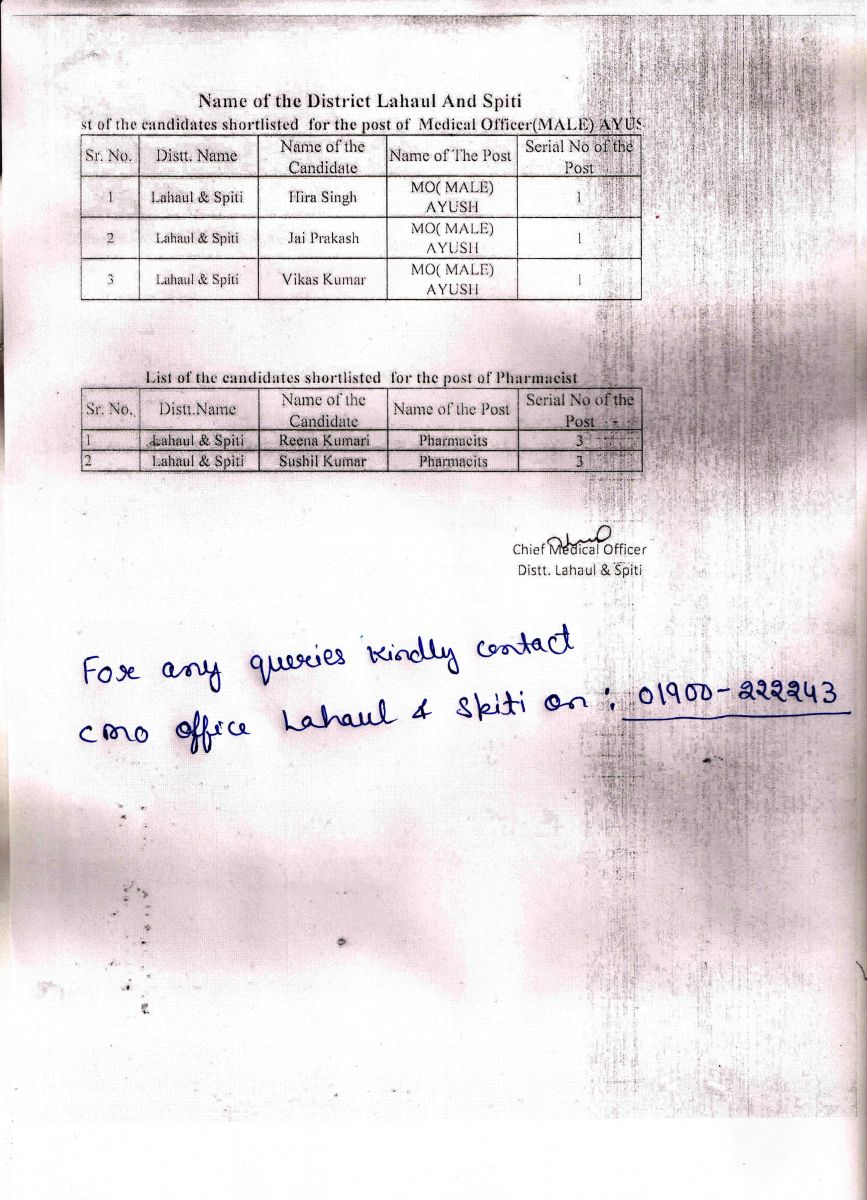 Name of the District Lahaul And Spiti
st of the candidates shortlisted for the post of Medical Officer(MALE) AYUS
Sr. No. Distt. Name Name of the Candidate Name of The Post Serial No of the Post
1 Lahaul & Spiti Hira Singh MO( MALE) AYUSH 1
2 Lahaul & Spiti Jai Prakash MO( MALE) AYUSH 1
3 Lahaul & Spiti Vikas Kumar MO( MALE) AYUSH 1
List of the candidates shortlisted for the post of Pharmacist
Sr. No. Distt.Name Name of the Candidate Name of the Post Serial No of the Post
1 Lahaul & Spiti Reena Kumari Pharmacits 3
2 Lahaul & Spiti Sushil Kumar Pharmacits 3
Chief Medical Officer
Distt. Lahaul & Spiti
For any queries kindly contact
CMO office Lahaul & Spiti on : 01900-222243